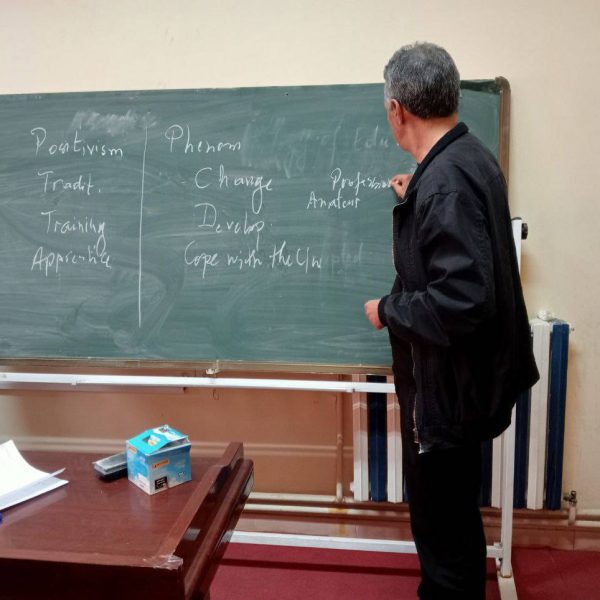 Positivism
Tradit.
Training
Apprentice
Phenom
Change
Develop.
Cope with the
Profession
Amateur
of Edu